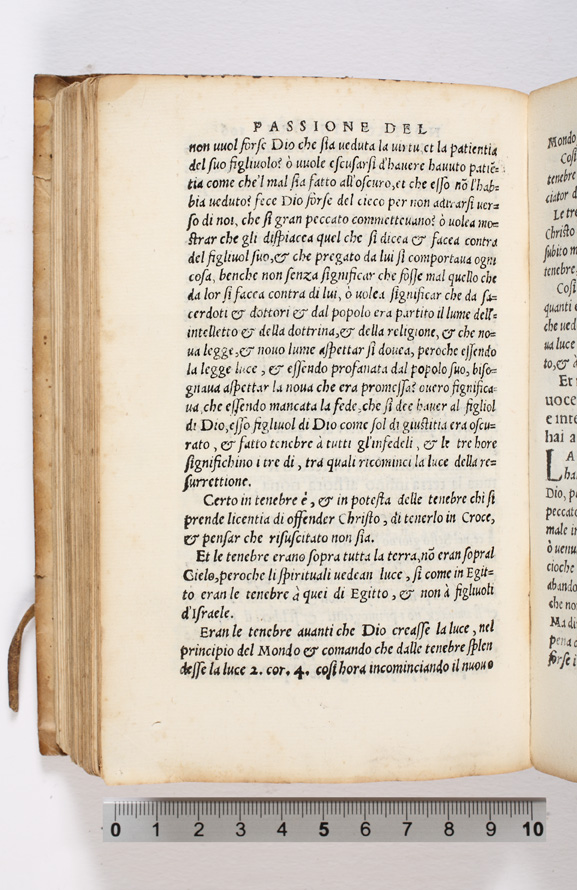 PASSIONE DEL
non uuol forse Dio che sia ueduta la uirtu et la patientia
del suo figliuolo? ò uuole escusarsi d'hauere hauuto patiẽ-
tia come che'l mal sia fatto all'oscuro, et che esso nõ l'hab-
bia ueduto? fece Dio forse del cieco per non adirarsi uer-
so di noi, che sì gran peccato commetteuano? ò uolea mo-
strar che gli dispiacea quel che si dicea & facea contra
del figliuol suo, & che pregato da lui si comportaua ogni
cosa, benche non senza significar che fosse mal quello che
da lor si facea contra di lui, ò uolea significar che da sa-
cerdoti & dottori & dal popolo era partito il lume dell'-
intelletto & della dottrina, & della religione, & che no-
ua legge, & nouo lume aspettar si douea, peroche essendo
la legge luce, & essendo profanata dal popolo suo, biso-
gnaua aspettar la noua che era promessa? ouero significa-
ua che essendo mancata la fede, che si dee hauer al figliol
di Dio, esso figliuol di Dio come sol di giustitia era oscu-
rato, & fatto tenebre à tutti gl'infedeli, & le tre hore
significhino i tre dì, tra quali ricominci la luce della re-
surrettione.
Certo in tenebre é, & in potesta delle tenebre chi si
prende licentia di offender Christo, di tenerlo in Croce,
& pensar che risuscitato non sia.
Et le tenebre erano sopra tutta la terra, nõ eran sopral
Cielo, peroche li spirituali uedean luce, sì come in Egit-
to eran le tenebre à quei di Egitto, & non à figliuoli
d'Israele.
Eran le tenebre auanti che Dio creasse la luce, nel
principio del Mondo & comando che dalle tenebre splen
desse la luce 2. cor. 4. così hora incominciando il nuouo
Mondo
Così
tenebre
ciator d
Le tre
Christo
subito m
tenebre
Così
quanti e
che ued
ua luce
to, & à
Et
uoce
e inte
hai a
LA
ha
Dio, pa
peccato
male in
ò uenu
cioche
abando
che no
Ma di
pena
forse i
0 1 2 3 4 5 6 7 8 9 10